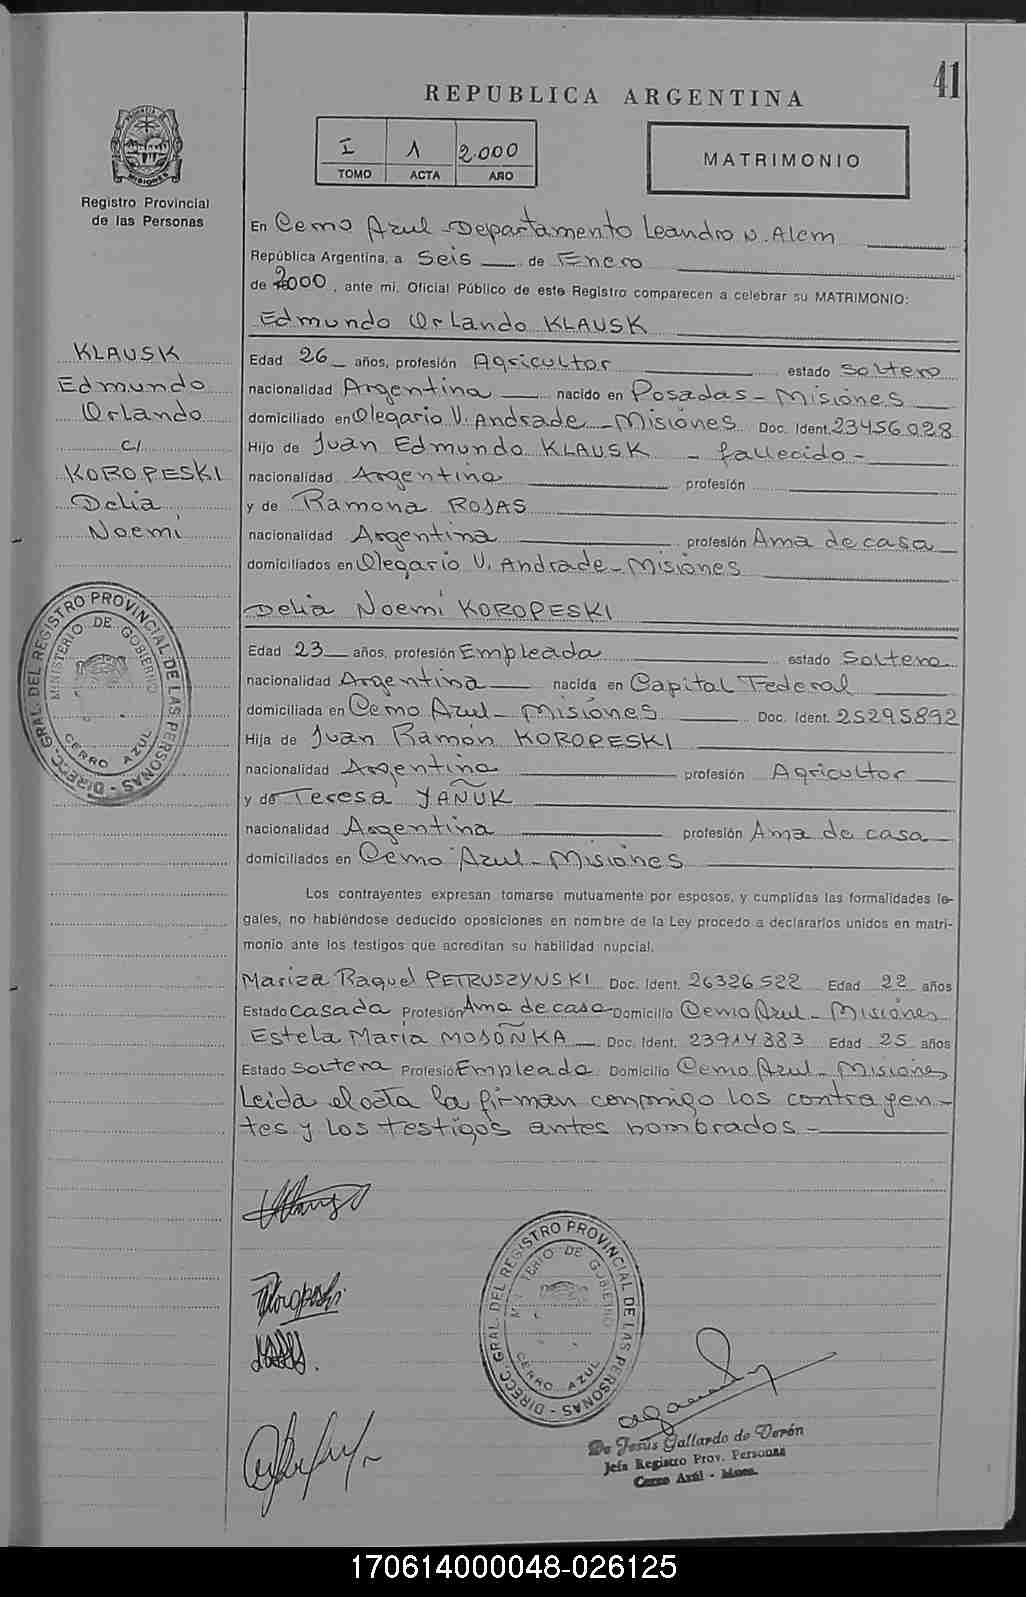 41
REPUBLICA ARGENTINA
I 1 2.000
TOMO ACTA AÑO
MATRIMONIO
Registro Provincial
de las Personas
KLAUSK
Edmundo
Orlando
c/
KOROPESKI
Delia
Noemí
En Cerro Azul - Departamento Leandro N. Alem
República Argentina, a Seis de Enero
de 2000, ante mí, Oficial Público de este Registro comparecen a celebrar su MATRIMONIO:
Edmundo Orlando KLAUSK
Edad 26 años, profesión Agricultor estado Soltero
nacionalidad Argentina nacido en Posadas - Misiones
domiciliado en Olegario V. Andrade - Misiones Doc. Ident. 23456028
Hijo de Juan Edmundo KLAUSK - fallecido -
nacionalidad Argentina profesión
y de Ramona ROJAS
nacionalidad Argentina profesión Ama de casa
domiciliados en Olegario V. Andrade - Misiones
Delia Noemí KOROPESKI
Edad 23 años, profesión Empleada estado Soltera
nacionalidad Argentina nacida en Capital Federal
domiciliada en Cerro Azul - Misiones Doc. Ident. 25295892
Hija de Juan Ramón KOROPESKI
nacionalidad Argentina profesión Agricultor
y de Teresa YAÑUK
nacionalidad Argentina profesión Ama de casa
domiciliados en Cerro Azul - Misiones
Los contrayentes expresan tomarse mutuamente por esposos, y cumplidas las formalidades le-
gales, no habiéndose deducido oposiciones en nombre de la Ley procedo a declararlos unidos en matri-
monio ante los testigos que acreditan su habilidad nupcial.
Mariza Raquel PETRUSZYNSKI Doc. Ident. 26326522 Edad 22 años
Estado Casada Profesión Ama de casa Domicilio Cerro Azul - Misiones
Estela María MOSOÑKA Doc. Ident. 23914383 Edad 25 años
Estado Soltera Profesión Empleada Domicilio Cerro Azul - Misiones
Leida el acta la firman conmigo los contrayen-
tes y los testigos antes nombrados -
DIRECC. GRAL. DEL REGISTRO PROVINCIAL DE LAS PERSONAS
MINISTERIO DE GOBIERNO
CERRO AZUL
DIRECC. GRAL. DEL REGISTRO PROVINCIAL DE LAS PERSONAS
MINISTERIO DE GOBIERNO
CERRO AZUL
De Jesús Gallardo de Verón
Jefa Registro Prov. Personas
Cerro Azúl - Mnes.
170614000048-026125